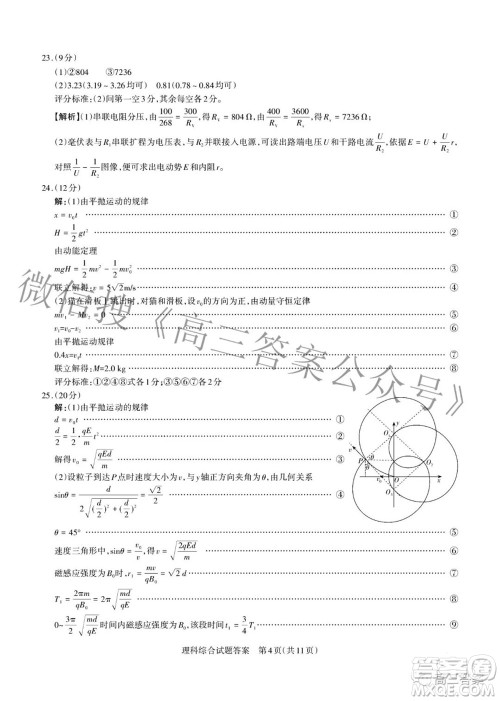 23.(9分)
(1)②804  ③7236
(2)3.23(3.19～3.26均可)  0.81(0.78～0.84均可)
评分标准:(2)问第一空3分,其余每空各2分。
【解析】(1)串联电阻分压,由100/268=300/R₁,得R₁=804 Ω,由400/R₁=3600/R₂,得R₂=7236 Ω
(2)毫伏表与R₁串联扩程为电压表,与R₂并联接入电源,可读出路端电压U和干路电流U/R₂,依据E=U+U/R₂ r,
对照1/U—1/R₂图像,便可求出电动势E和内阻r。
24.(12分)
解:(1)由平抛运动的规律
s=v₀t ①
H=1/2 gt² ②
由动能定理
mgH=1/2 mv²−1/2 mv₀² ③
联立解得:v=5√2m/s ④
(2)猫在滑板上跳出时,对猫和滑板,设v₀的方向为正方向,由动量守恒定律
mv₁−Mv₂=0 ⑤
v₁=v₀−v₂ ⑥
由平抛运动规律
0.4s=v₁t ⑦
联立解得:M=2.0 kg ⑧
评分标准:①②④⑧式各1分;③⑤⑥⑦式各2分
25.(20分)
解:(1)由平抛运动的规律
d=v₀t ①
d/2=1/2·qE/m t² ②
解得v₀=√(qEd/m) ③
(2)设粒子到达P点时速度大小为v,与y轴正方向夹角为θ,由几何关系
sinθ=d/(2√((d/2)²+(d/2)²))=√2/2 ④
θ=45° ⑤
速度三角形中,sinθ=v₀/v,得v=√(2qEd/m) ⑥
磁感应强度为B₀时,r₁=mv/qB₀=√2 d ⑦
T₁=2πm/qB₀=2π√(md/qE) ⑧
0~3π/2√(md/qE)时间内磁感应强度为B₀,该段时间t₁=3/4 T₁ ⑨
理科综合试题答案  第4页(共11页)
微信搜《高三答案公众号》
高三答案